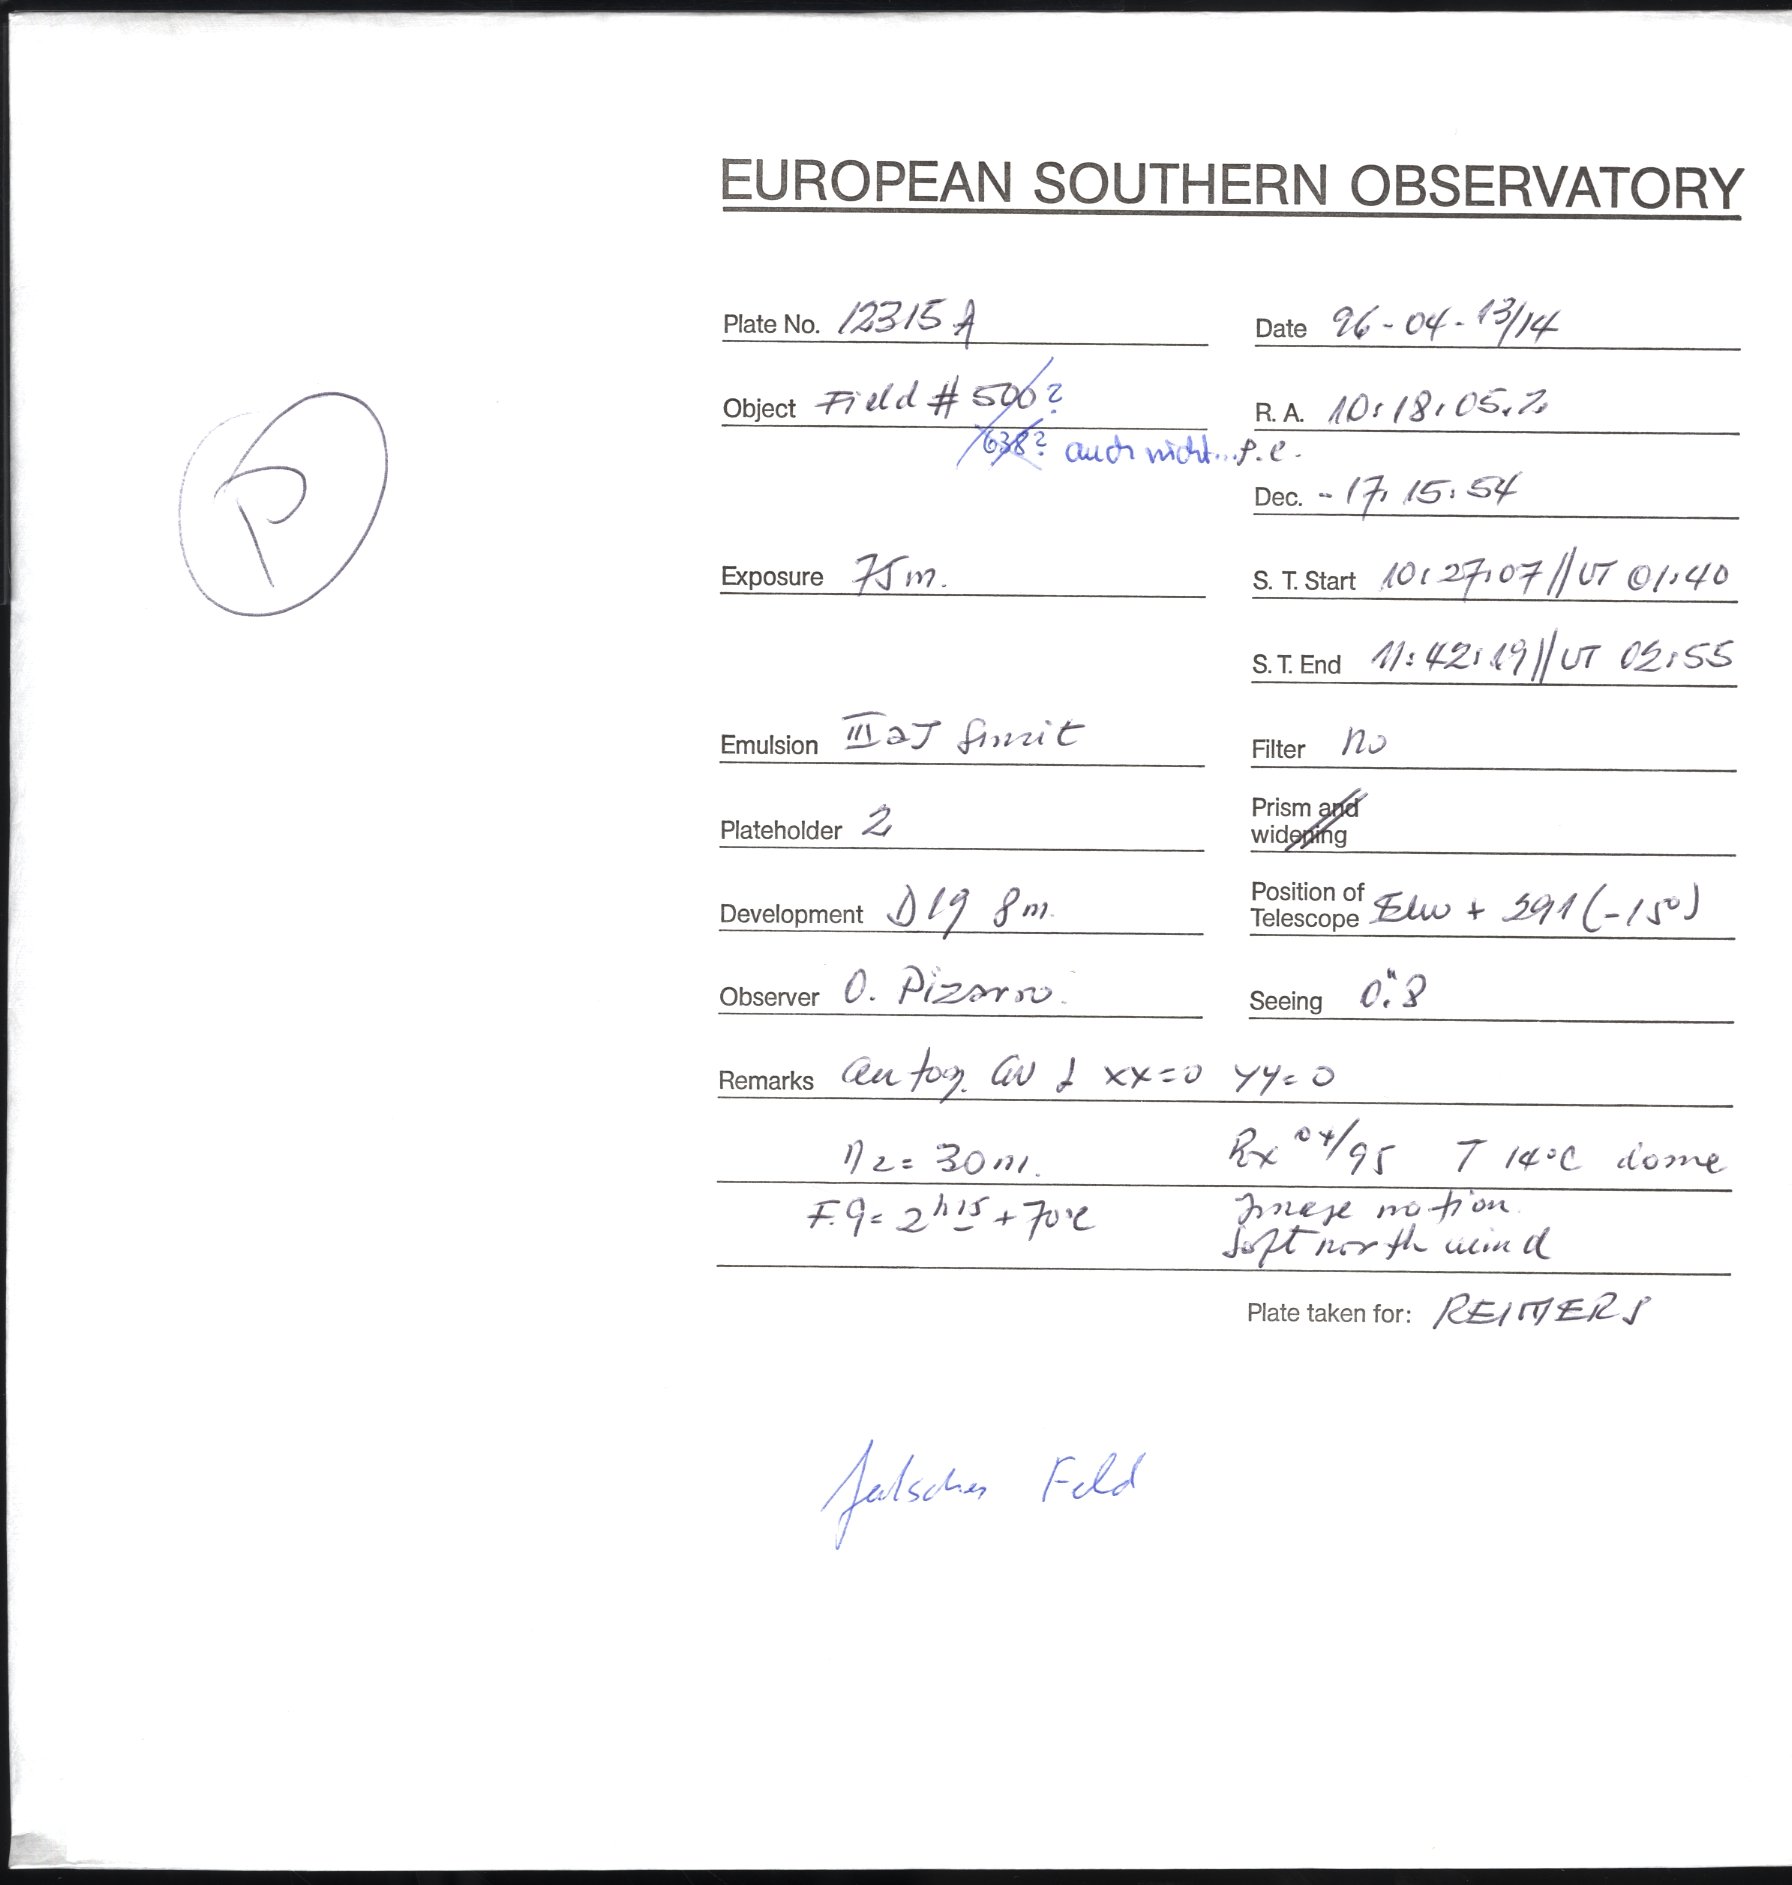 EUROPEAN SOUTHERN OBSERVATORY
Plate No. 12315 A
Date 96-04-13/14
Object Field # 500?
638? auch nicht...
R. A. 10:18:05.2
P.
Dec. -17:15:54
Exposure 75 m.
S. T. Start 10:27:07 // UT 01:40
S. T. End 11:42:19 // UT 02:55
Emulsion IIIaJ
Filter no
Plateholder 2
Prism and
widening
Development D19 8m.
Position of
Telescope + 291 (-15°)
Observer O. Pizarro.
Seeing 0."8
Remarks xx=0 yy=0
= 30 m.
04/95 T 14°C dome
= 2h15 + 70°C
Image motion
Soft north wind
Plate taken for: REIMERS
falsches Feld